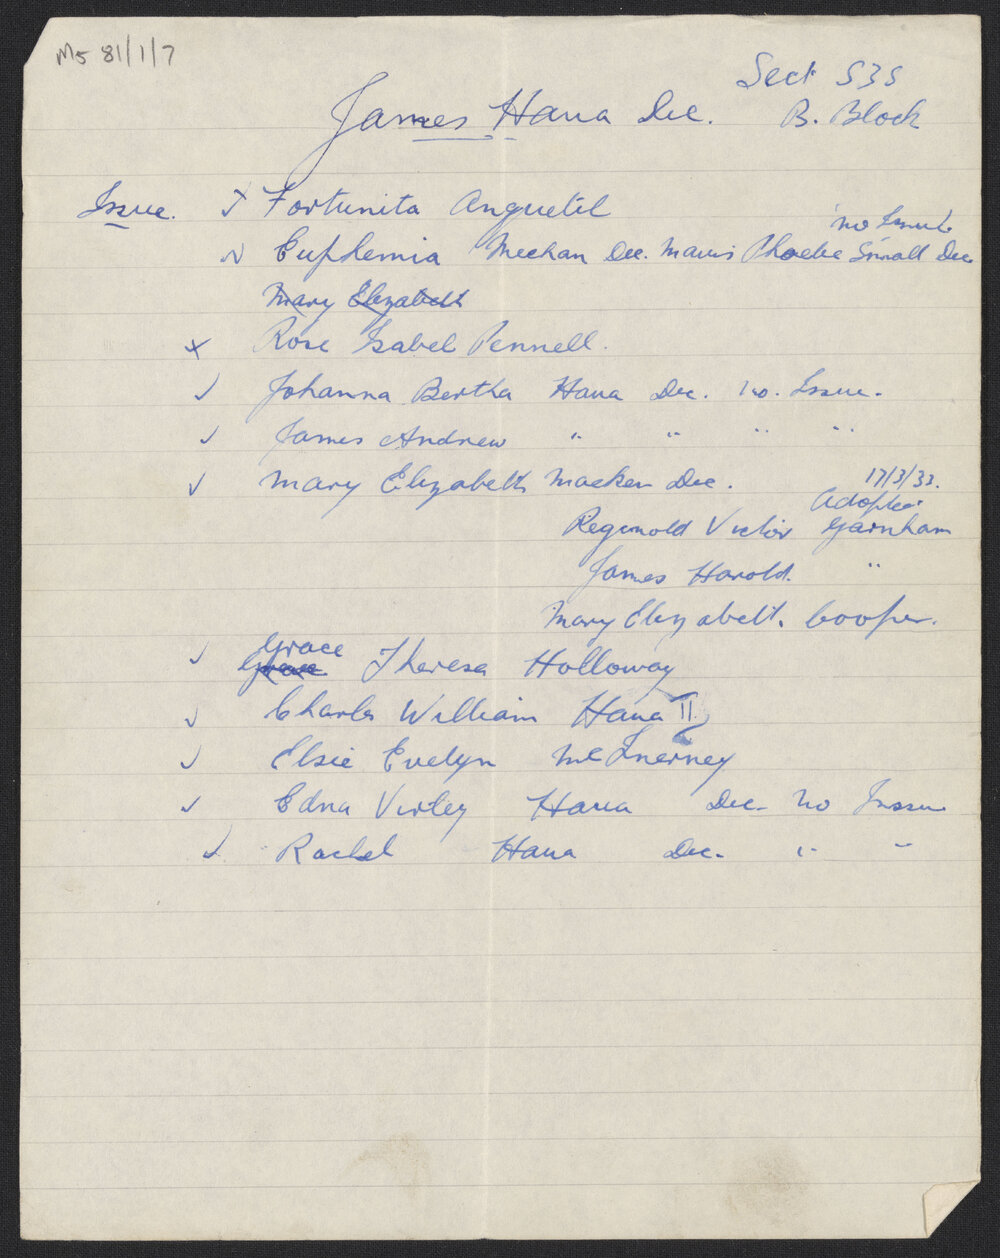 Ms 81/1/7
Sect 535
James Haua Dec. B. Block
Issue. Fortunita Anquetil
no Issue
Euphemia Meehan Dec. Mavis Phoebe Small Dec
Mary Elizabeth
Rose Isabel Pennell.
Johanna Bertha Haua Dec. no. Issue.
James Andrew " " " "
Mary Elizabeth Macken Dec. 17/3/33.
Adopted
Reginold Victor Garnham
James Harold. "
Mary Elizabeth. Cooper.
Grace
Grace Theresa Holloway
Charles William Haua II
Elsie Evelyn McInerney
Edna Virley Haua Dec- no Issue
Rachel Haua Dec. " "